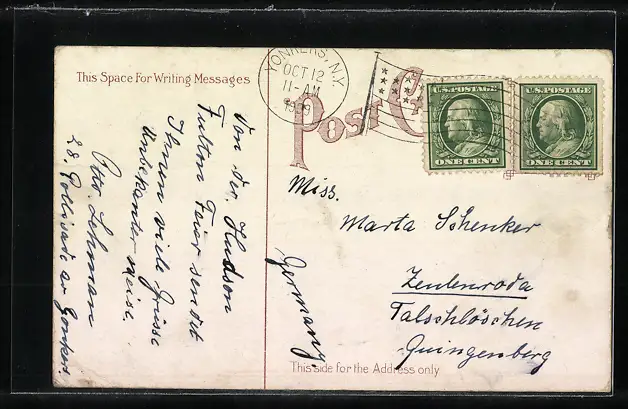 This Space For Writing Messages
Von der Hudson
Fulton Feier sendet
Ihnen viele Grüsse
Unbekanter weise.
Otto Lehman
28. Pallisade av Yonkers
YONKERS, N.Y.
OCT 12
11-AM
1909
Post
U.S. POSTAGE
ONE CENT
U.S. POSTAGE
ONE CENT
Miss.
Marta Schenker
Zeulenroda
Talschlöschen
Quingenberg
Germany
This side for the Address only